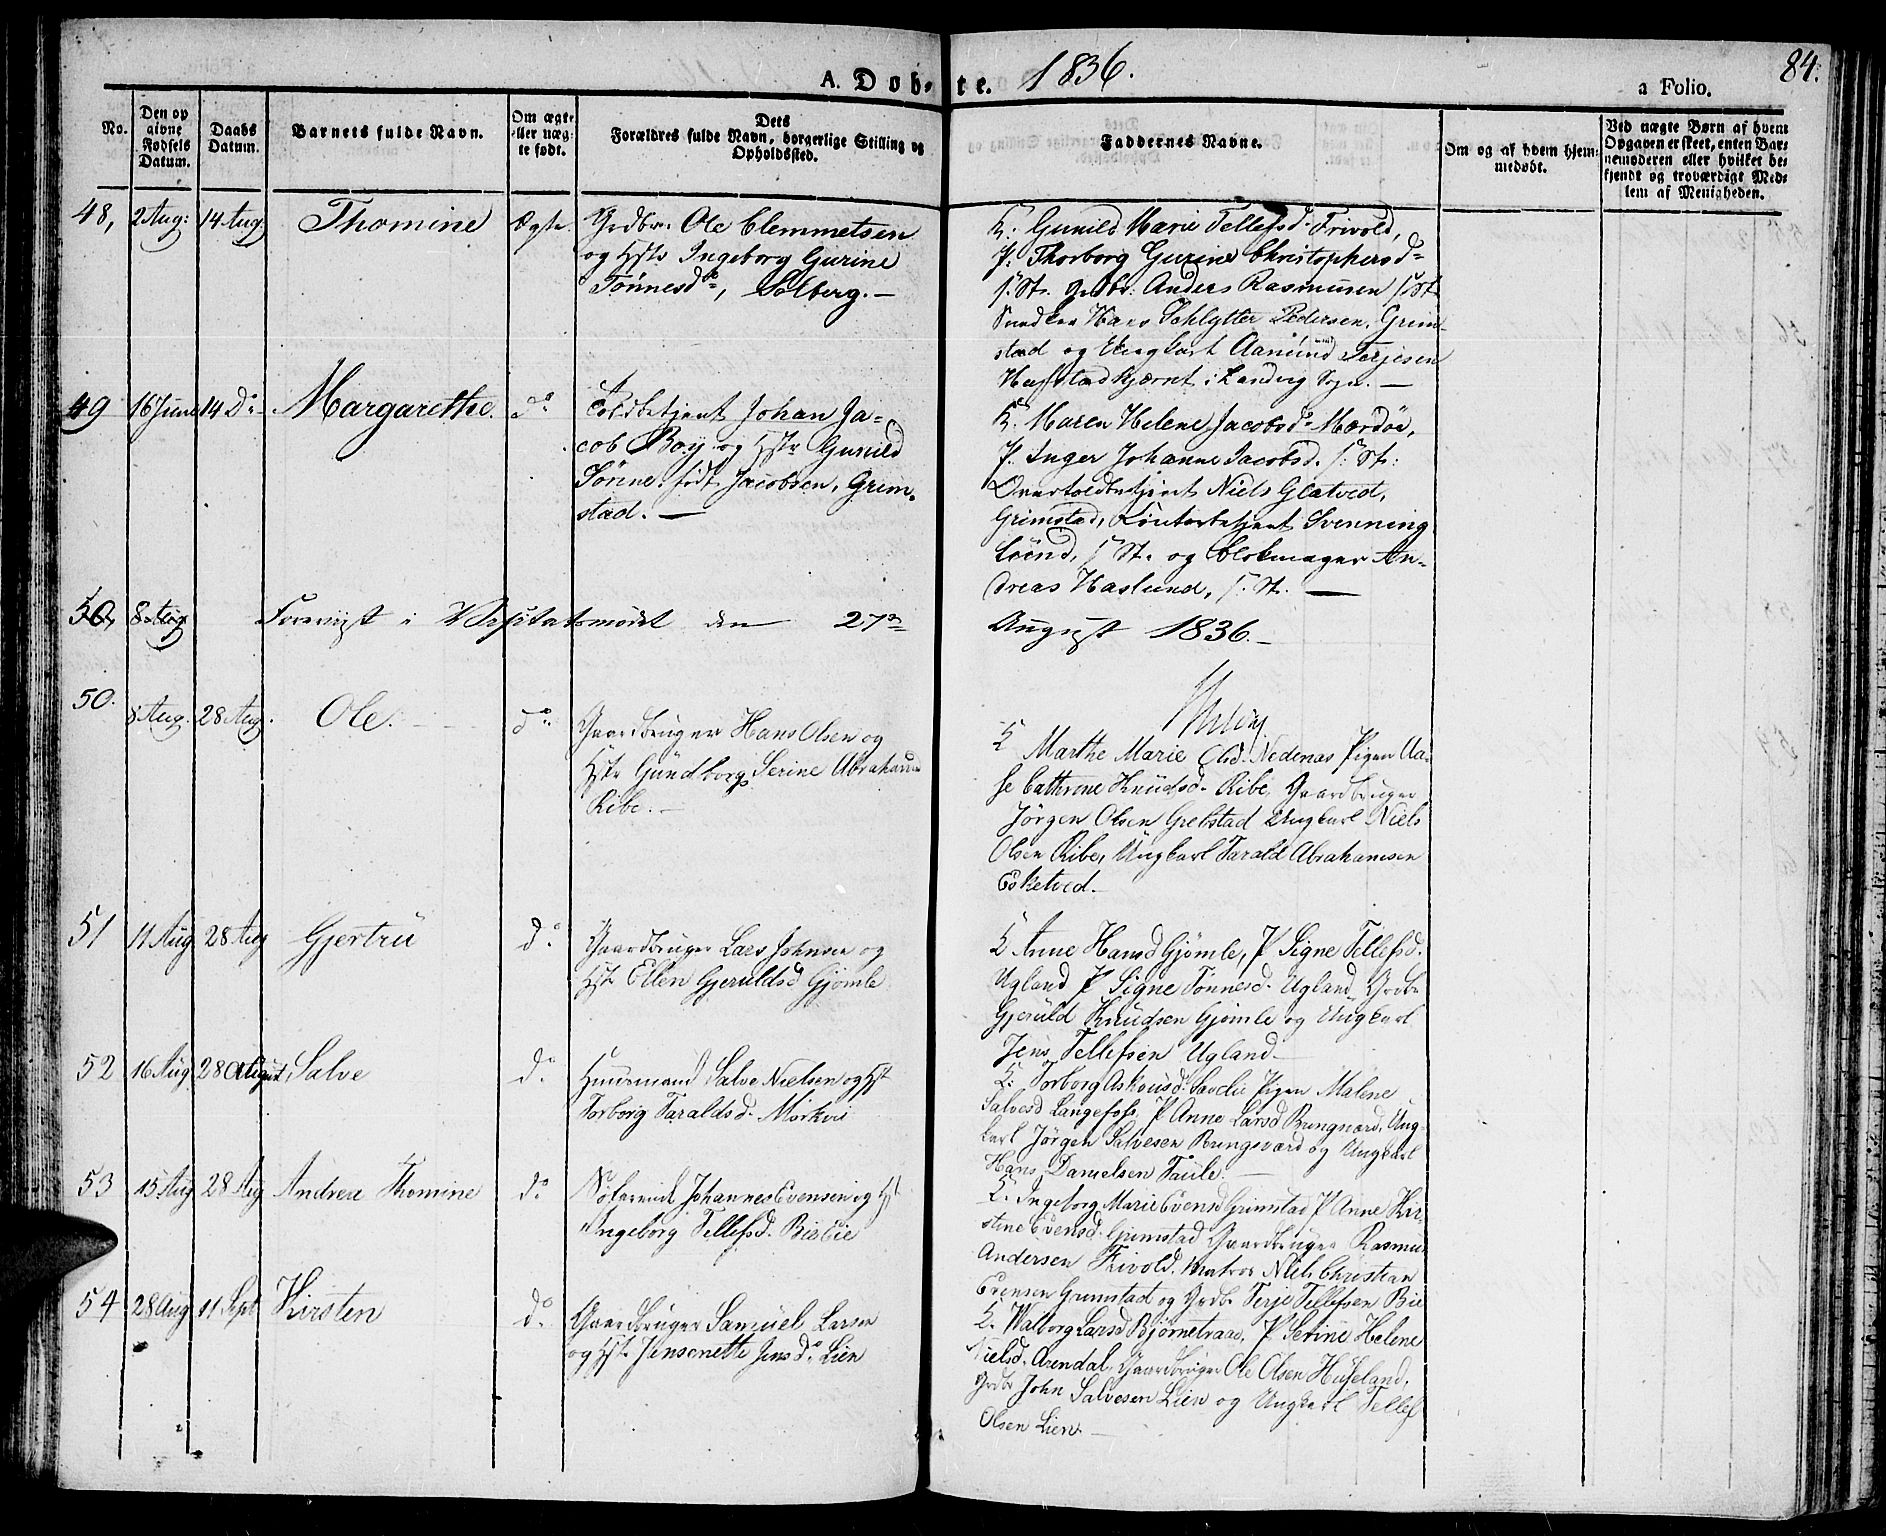 A. Døbte. 1836. a Folio. 84.
No.
Den opgivne Fødsels Datum.
Daabs Datum.
Barnets fulde Navn.
Om ægte eller uægte født.
Dets Forældres fulde Navn, borgerlige Stilling og Opholdssted.
Faddernes Navne.
Om og af hvem hjemmedøbt.
Ved uægte Børn af hvem Opgaven er skeet, enten Barnemoderen eller hvilket bekjendt og troværdigt Medlem af Menigheden.
48, 2 Aug: 14 Aug Thomine Ægte.
Grdbr. Ole Clemmetsen
og Hstr Ingeborg Gurine
Tønnesd., Solberg. —
K: Gunild Marie Tellefsd. Frivold,
P: Thorborg Gurine Christophersd.
f. St. Grdbr: Anders Rasmusen f. St.
Snedker Hans Schlytter Pedersen, Grim-
stad og Ungkarl Aamund Terjesen
Hafstadkjærnt i Landvig Sogn. —
49 16 June 14 Do Margarethe. do
Toldbetjent Johan Ja-
cob Boij og Hstr Gunild
Sørine født Jacobsen, Grim-
stad. —
K. Maren Helene Jacobsd. Mærdøe,
P. Inger Johanne Jacobsd. f: St:
Overtoldbetjent Niels Glatved,
Grimstad, Contorbetjent Svenning
Lund, f. St. og Blokmager An-
dreas Haslund, f. St. —
50, 8 Aug
Foreviist i Visitatsmødet den 27de August 1836. —
50. 8 Aug. 28 Aug. Ole. do
Gaardbruger Hans Olsen og
Hstr Gundborg Serine Abrahamsd
Ribe. —
K Marthe Marie Olsd. Nedenæs Pigen Aa-
se Cathrine Knudsd. Ribe, Gaardbruger
Jörgen Olsen Grebstad Ungkarl Niels
Olsen Ribe, Ungkarl Tarald Abrahamsen
Esketved.
51 11 Aug 28 Aug Gjertru do
Gaardbruger Lars Johnsen og
Hstr Ellen Gjeruldsd Gjömle
K Anne Hansd Gjömle, P Signe Tellefsd.
Ugland P Signe Tønnesd. Ugland, Grdbr
Gjeruld Knudsen Gjömle og Ungkarl
Jens Tellefsen Ugland —
52 16 Aug 28 August Salve do
Huusmand Salve Nielsen og Hst
Torborg Taraldsd. Mörkvii
K. Torborg Pigen Malene
Salvesd Langefoss, P Anne Larsd Bringsværd, Ung-
karl Jörgen Salvesen Bringsværd og Ungkarl
Hans Danielsen
53 15 Aug 28 Aug Andrea Thomine do
Söfarende Johannes Evensen og Hst
Ingeborg Tellefsd.
K. Ingeborg Marie Evensd Grimstad P Anne Kir-
stine Evensd. Grimstad Gaardbruger Rasmus
Andersen Frivold, Matros Niels Christian
Evensen Grimstad og Grdbr Terje Tellefsen Bie
54 28 Aug 11 Sept Kirsten do
Gaardbruger Samuel Larsen
og Hst. Jensenette Jensd. Lien
K. Walborg Larsd Bjørnetraae, P Serine Helene
Nielsd. Arendal, Gaardbruger Ole Olsen Huseland,
Grdbr John Salvesen Lien og Ungkarl Tellef
Olsen Lien. —